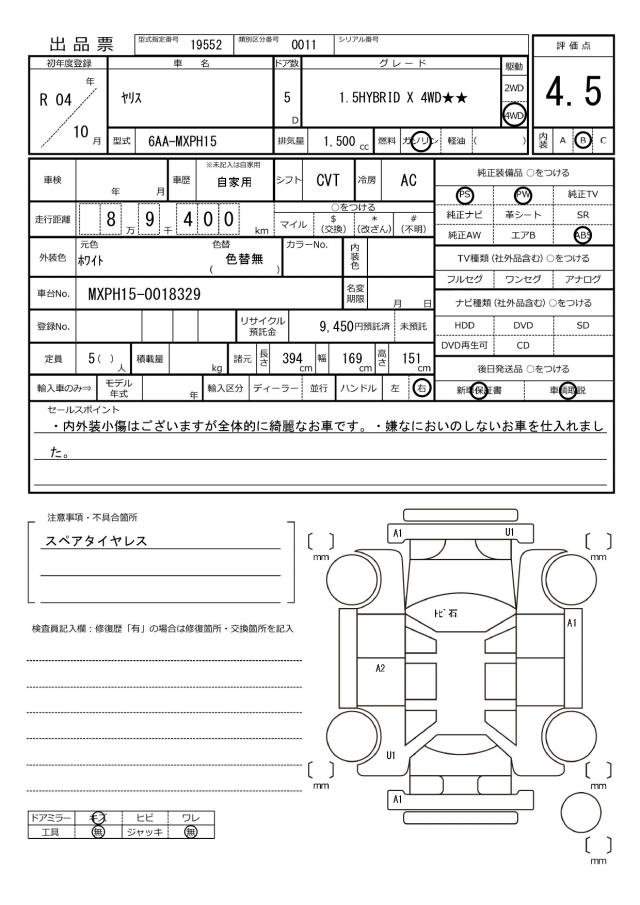 出品票 型式指定番号 19552 類別区分番号 0011 シリアル番号
評価点
初年度登録 車名 ドア数 グレード 駆動
R 04 年 10 月
ヤリス
5 D
1.5HYBRID X 4WD★★
2WD
4WD
4.5
型式 6AA-MXPH15 排気量 1.500 cc 燃料 ガソリン 軽油 ( )
内装 A B C
車検 年 月 車歴 ※未記入は自家用 自家用 シフト CVT 冷房 AC
純正装備品 ○をつける
PS PW 純正TV
純正ナビ 革シート SR
純正AW エアB ABS
走行距離 8 万 9 千 4 0 0 km
○をつける
マイル $(交換) *(改ざん) #(不明)
外装色 元色 ホワイト 色替 色替無 ( ) カラーNo. 内装色
TV種類(社外品含む)○をつける
フルセグ ワンセグ アナログ
車台No. MXPH15-0018329 名変期限 月 日
ナビ種類(社外品含む)○をつける
HDD DVD SD
DVD再生可 CD
登録No. リサイクル預託金 9,450円預託済 未預託
定員 5( )人 積載量 kg 諸元 長さ 394cm 幅 169cm 高さ 151cm
後日発送品 ○をつける
新車保証書 車輌取説
輸入車のみ⇒ モデル年式 年 輸入区分 ディーラー 並行 ハンドル 左 右
セールスポイント
・内外装小傷はございますが全体的に綺麗なお車です。・嫌なにおいのしないお車を仕入れまし
た。
注意事項・不具合箇所
スペアタイヤレス
検査員記入欄:修復歴「有」の場合は修復箇所・交換箇所を記入
A1 U1
mm mm
トビ石
A1
A2
U1
mm mm
A1
mm
ドアミラー キズ ヒビ ワレ
工具 無 ジャッキ 無